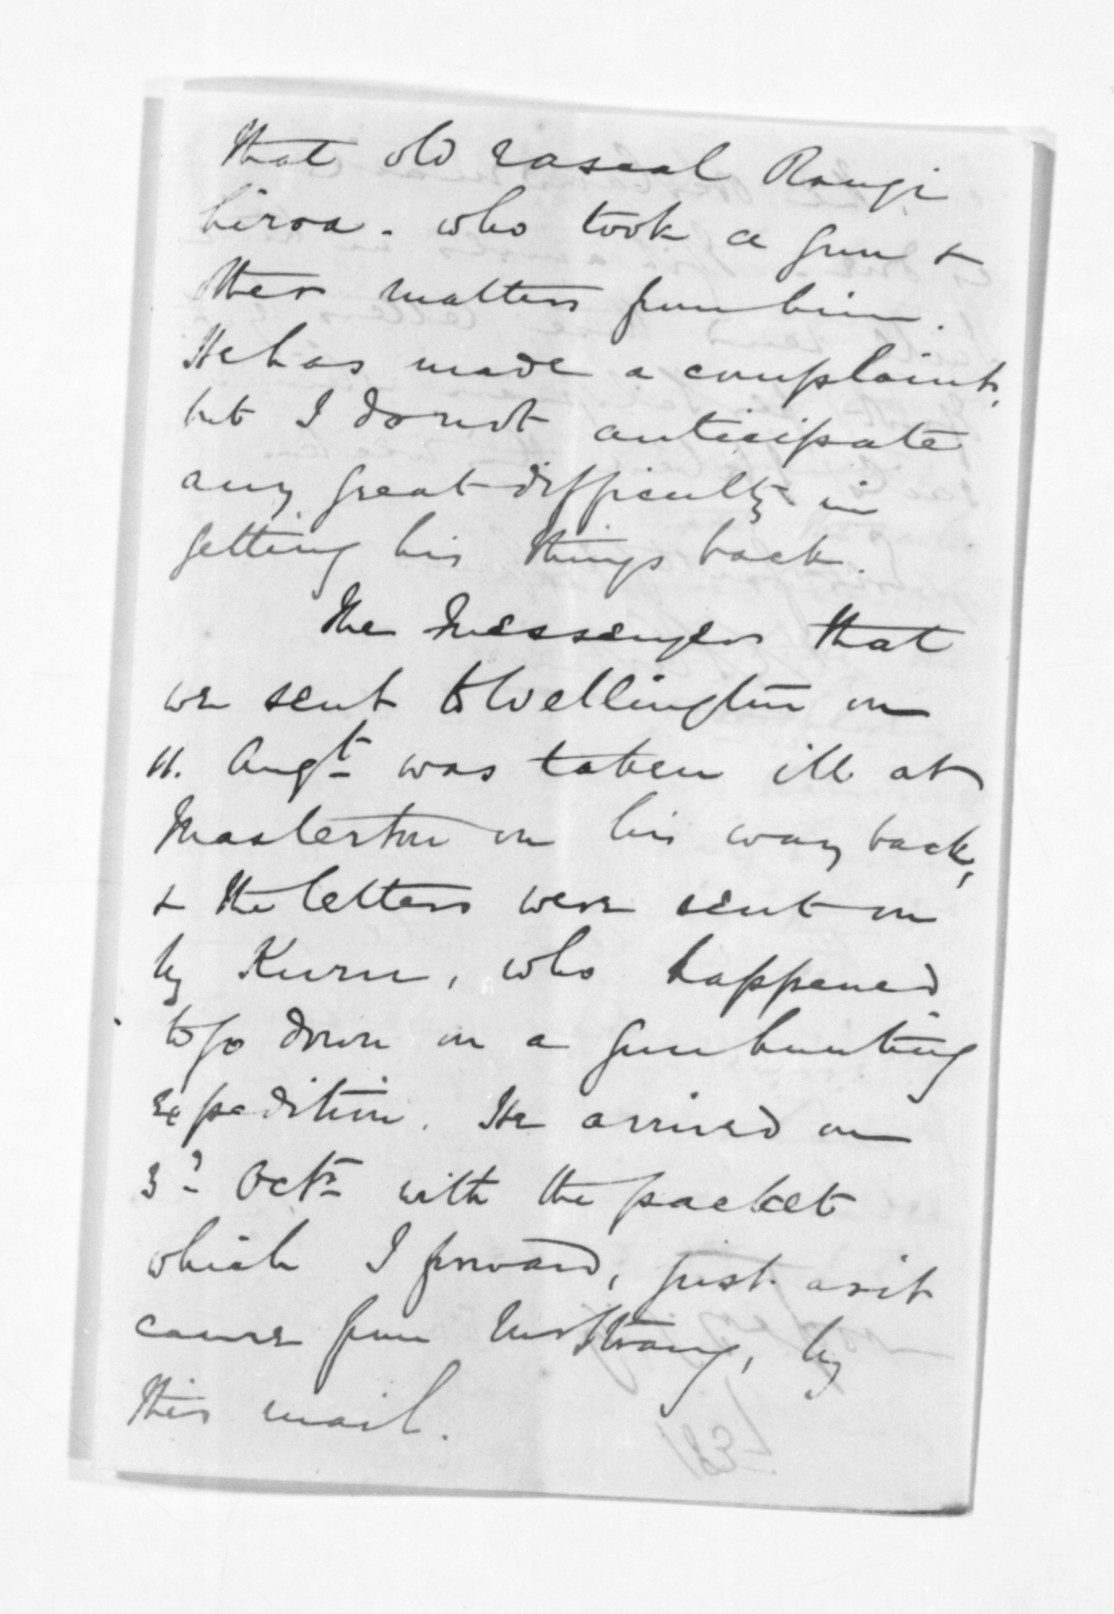 that old rascal Rangi
hiroa - who took a gun &
other matters from him.
He has made a complaint,
but I do not anticipate
any great difficulty in
getting his things back.
The Messenger that
we sent to Wellington on
11. Augt was taken ill at
Masterton on his way back,
& the letters were sent on
by Kuru, who happened
to go down on a gun hunting
expedition. He arrived on
3d Octr with the packet
which I forward, just as it
came from Mr Strang, by
this mail.